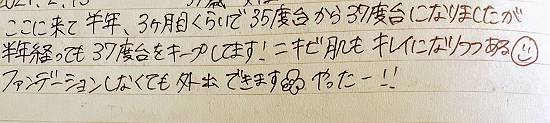 ここに来て半年、3ヶ月目くらいで35度台から37度台になりましたが
半年経っても37度台をキープしてます!ニキビ肌もキレイになりつつある
ファンデーションしなくても外出できます やったー!!